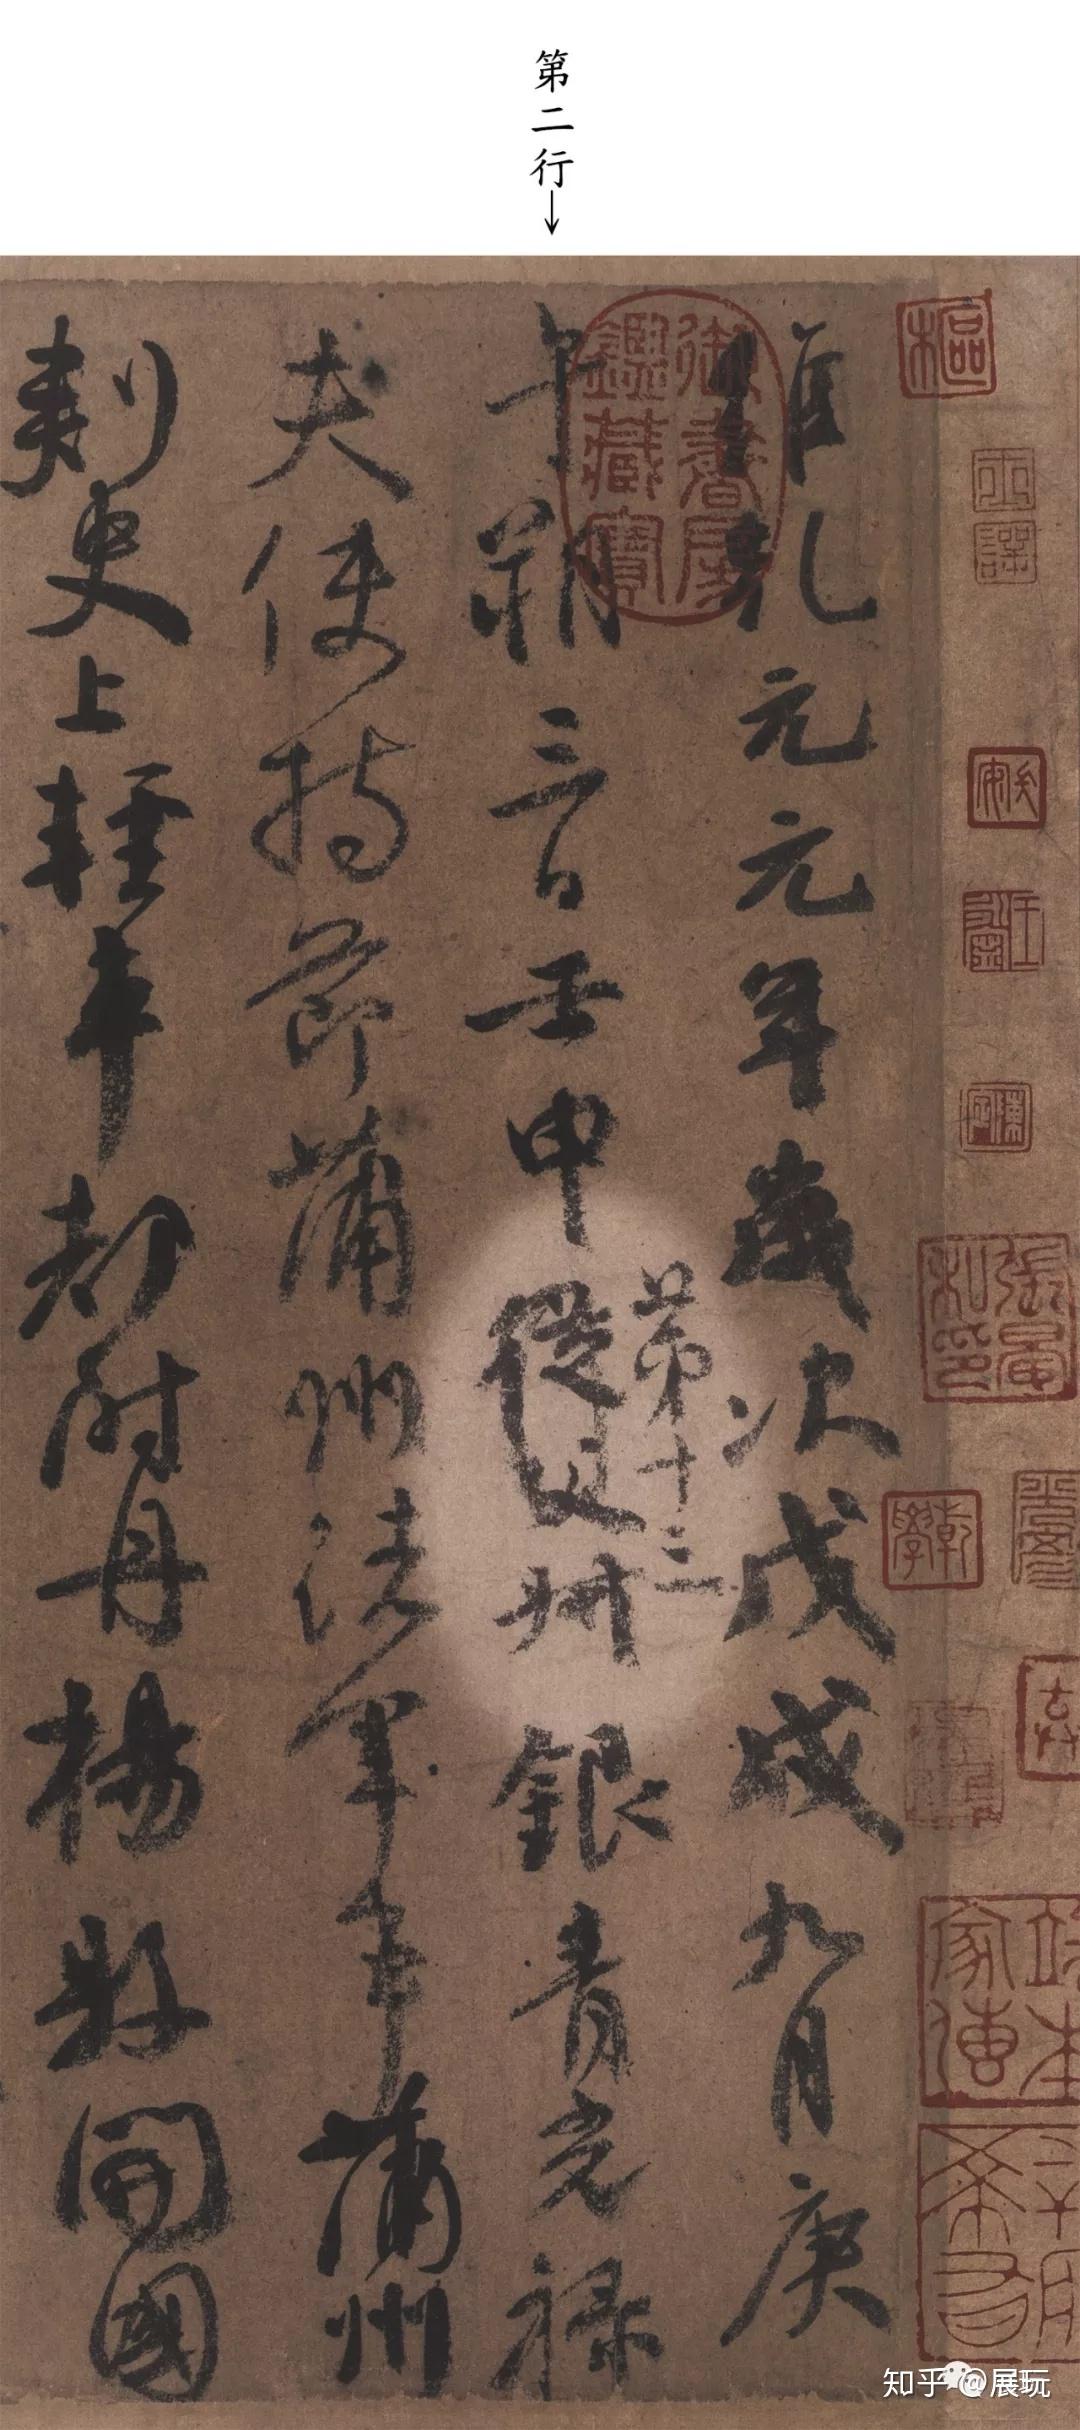 第二行
維乾元元年歲次戊戌九月庚
午朔三日壬申第十三從父叔銀青光祿
夫使持節蒲州諸軍事蒲州
刺史上輕車都尉丹楊縣開國
御書房鑑藏寶
樞
安
張晏私印
乾
學
家傳
知乎 @展玩